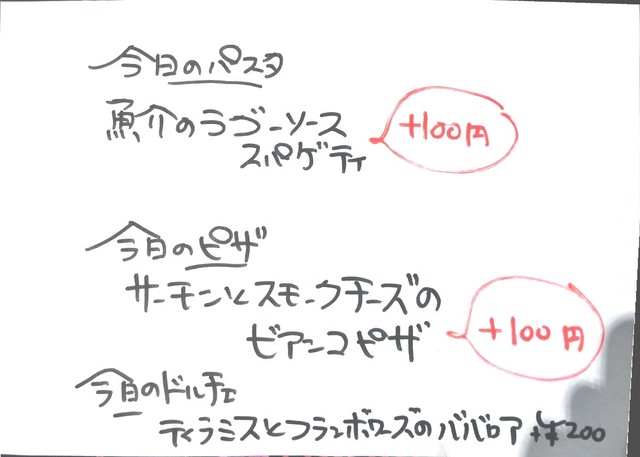 今日のパスタ
魚介のラグーソース
スパゲティ
+100円
今日のピザ
サーモンとスモークチーズの
ビアンコピザ
+100円
今日のドルチェ
ティラミスとフランボワーズのババロア +¥200